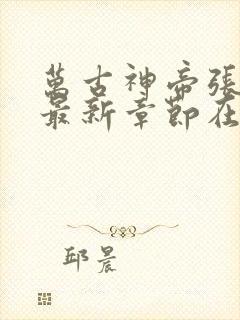 萬古神帝張
最新章節在
邱晨